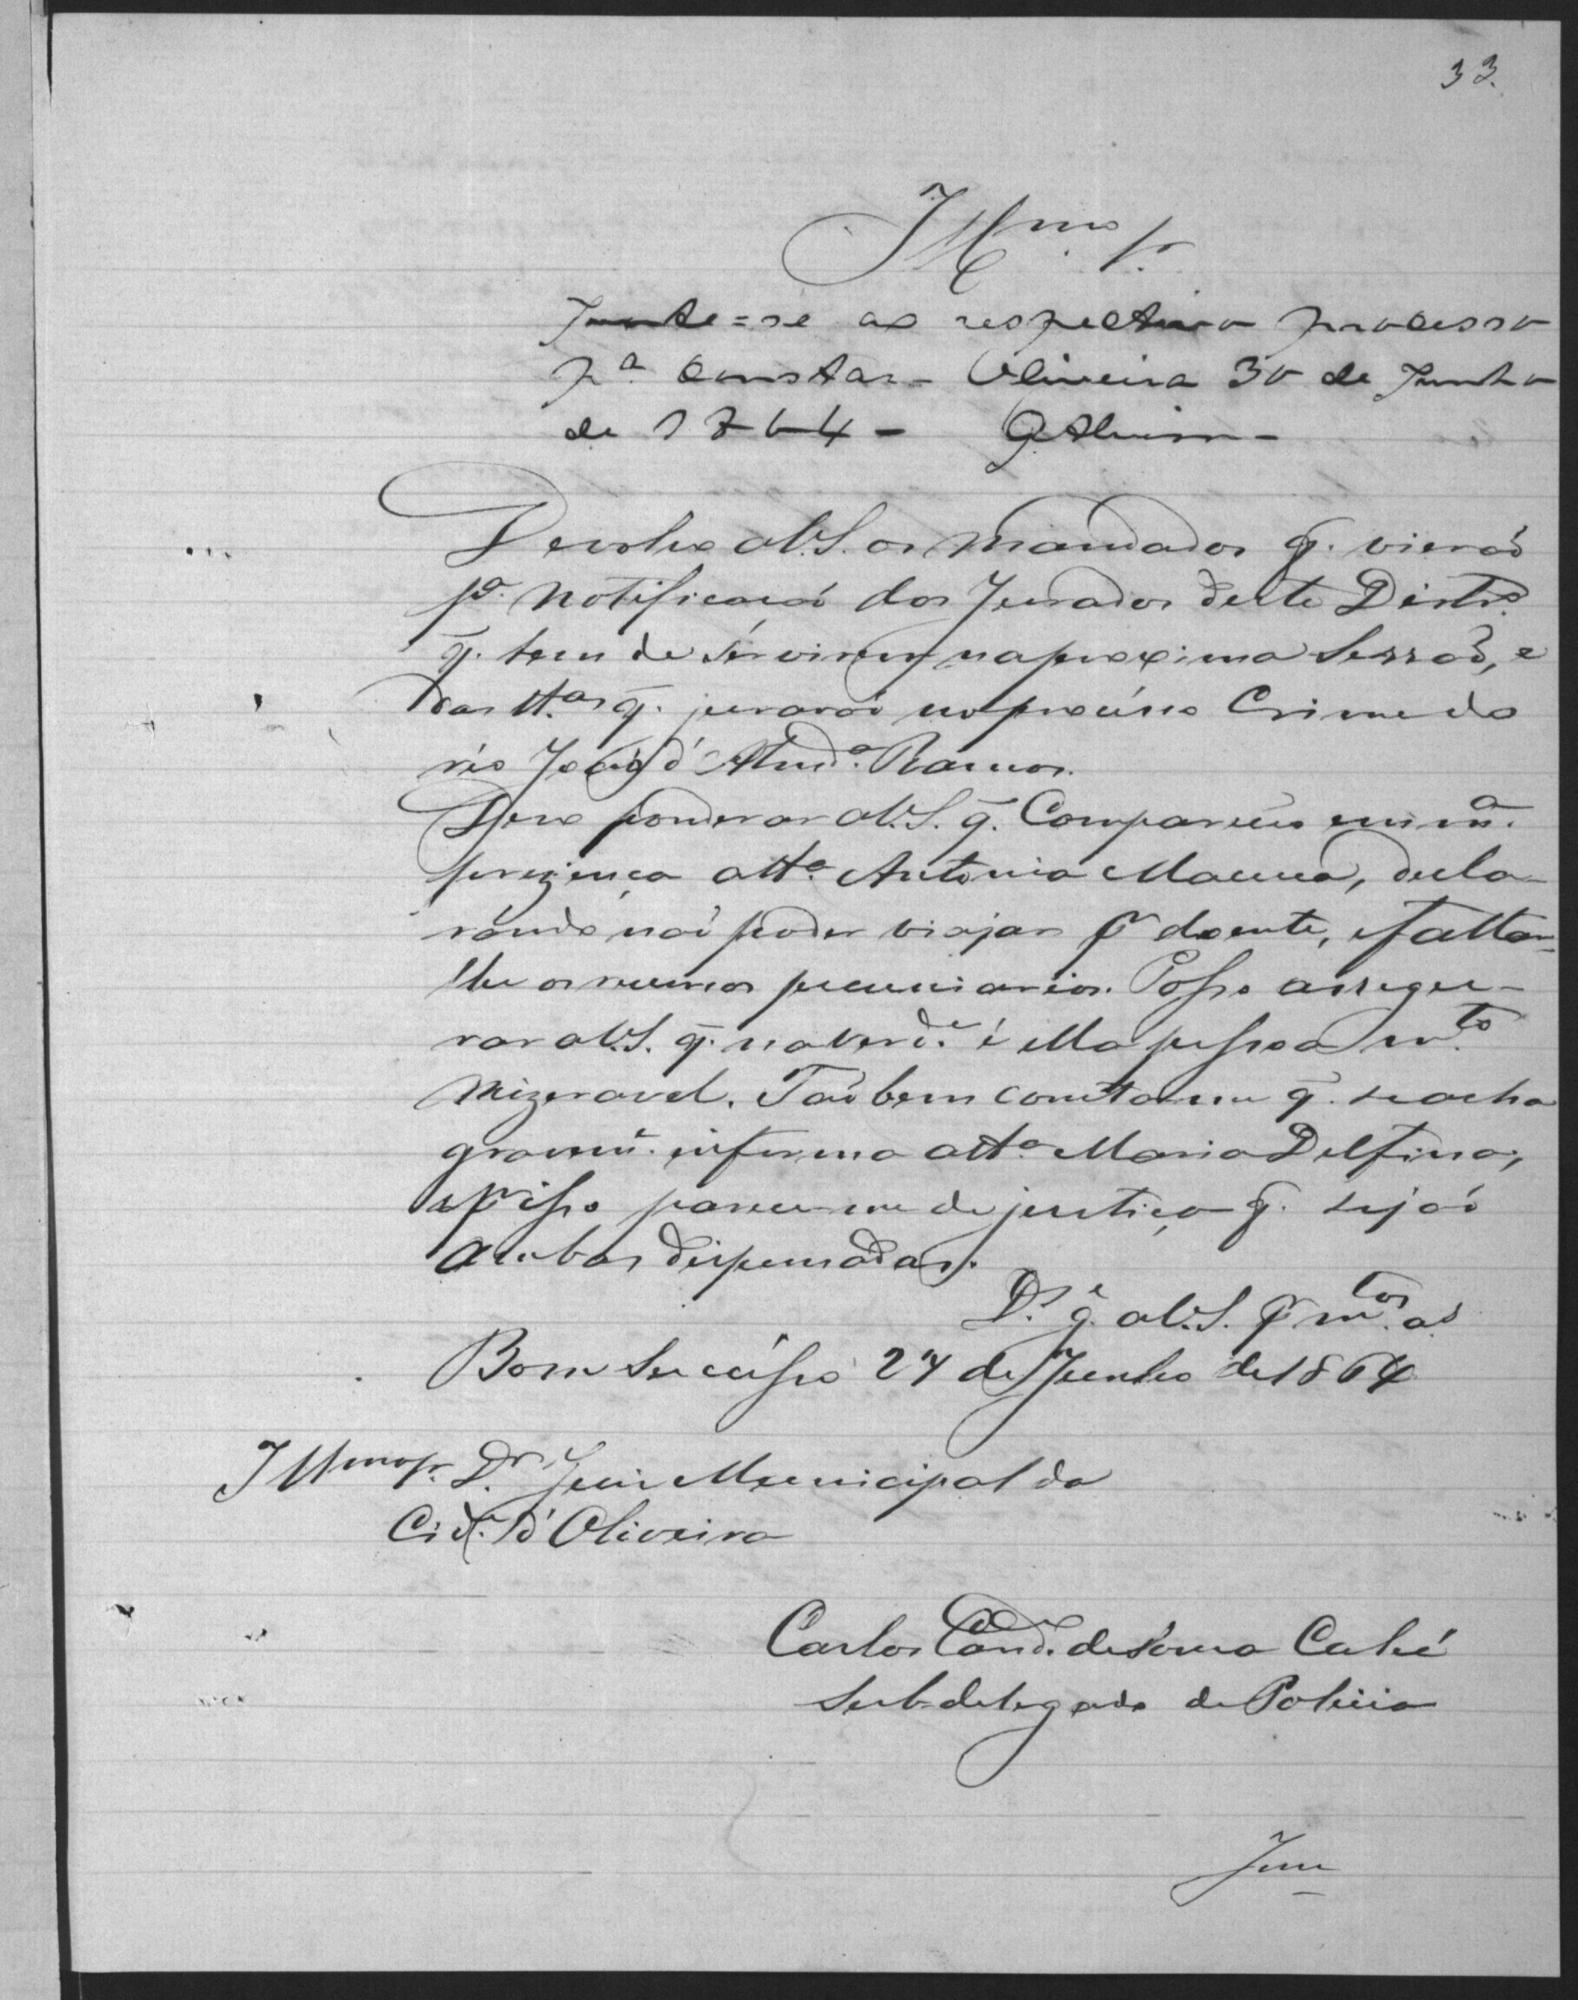 33.
Illmo Sr.
Junte=se ao respectivo processo
pa. constar - Oliveira 30 de Junho
de 1864 - G. Alvim -
Devolvo a V.S. os mandados q. vieraõ
pa. notificaçaõ dos Jurados deste Distro.
q. tem de sérvirem na proxima Sessaõ, e
das tt.as q. juraraõ no procésso Crime do
réo João d'Almda. Ramos.
Devo ponderar a V.S. q. Compareceo em ma.
prezença a tta. Antonia Maced, decla-
rando naõ poder viajar pr doente, e faltar-
lhe os recursos pecuniarios. Posso assegu-
rar a V.S. q. na verde. é ella pessoa mto.
Mizeravel. Taõbem consta-me q. se acha
gravemte. enferma a tta. Maria Delfina,
e pr isso parece-me de justiça q. sejaõ
ambas dispensadas.
Ds. ge. a V.S. pr mtos. as.
Bom Succésso 27 de Junho de 1864
Illmo Sr. Dr. Juiz Municipal da
Cide. d'Oliveira
Carlos Cando. de Souza
Subdelegado de Policia